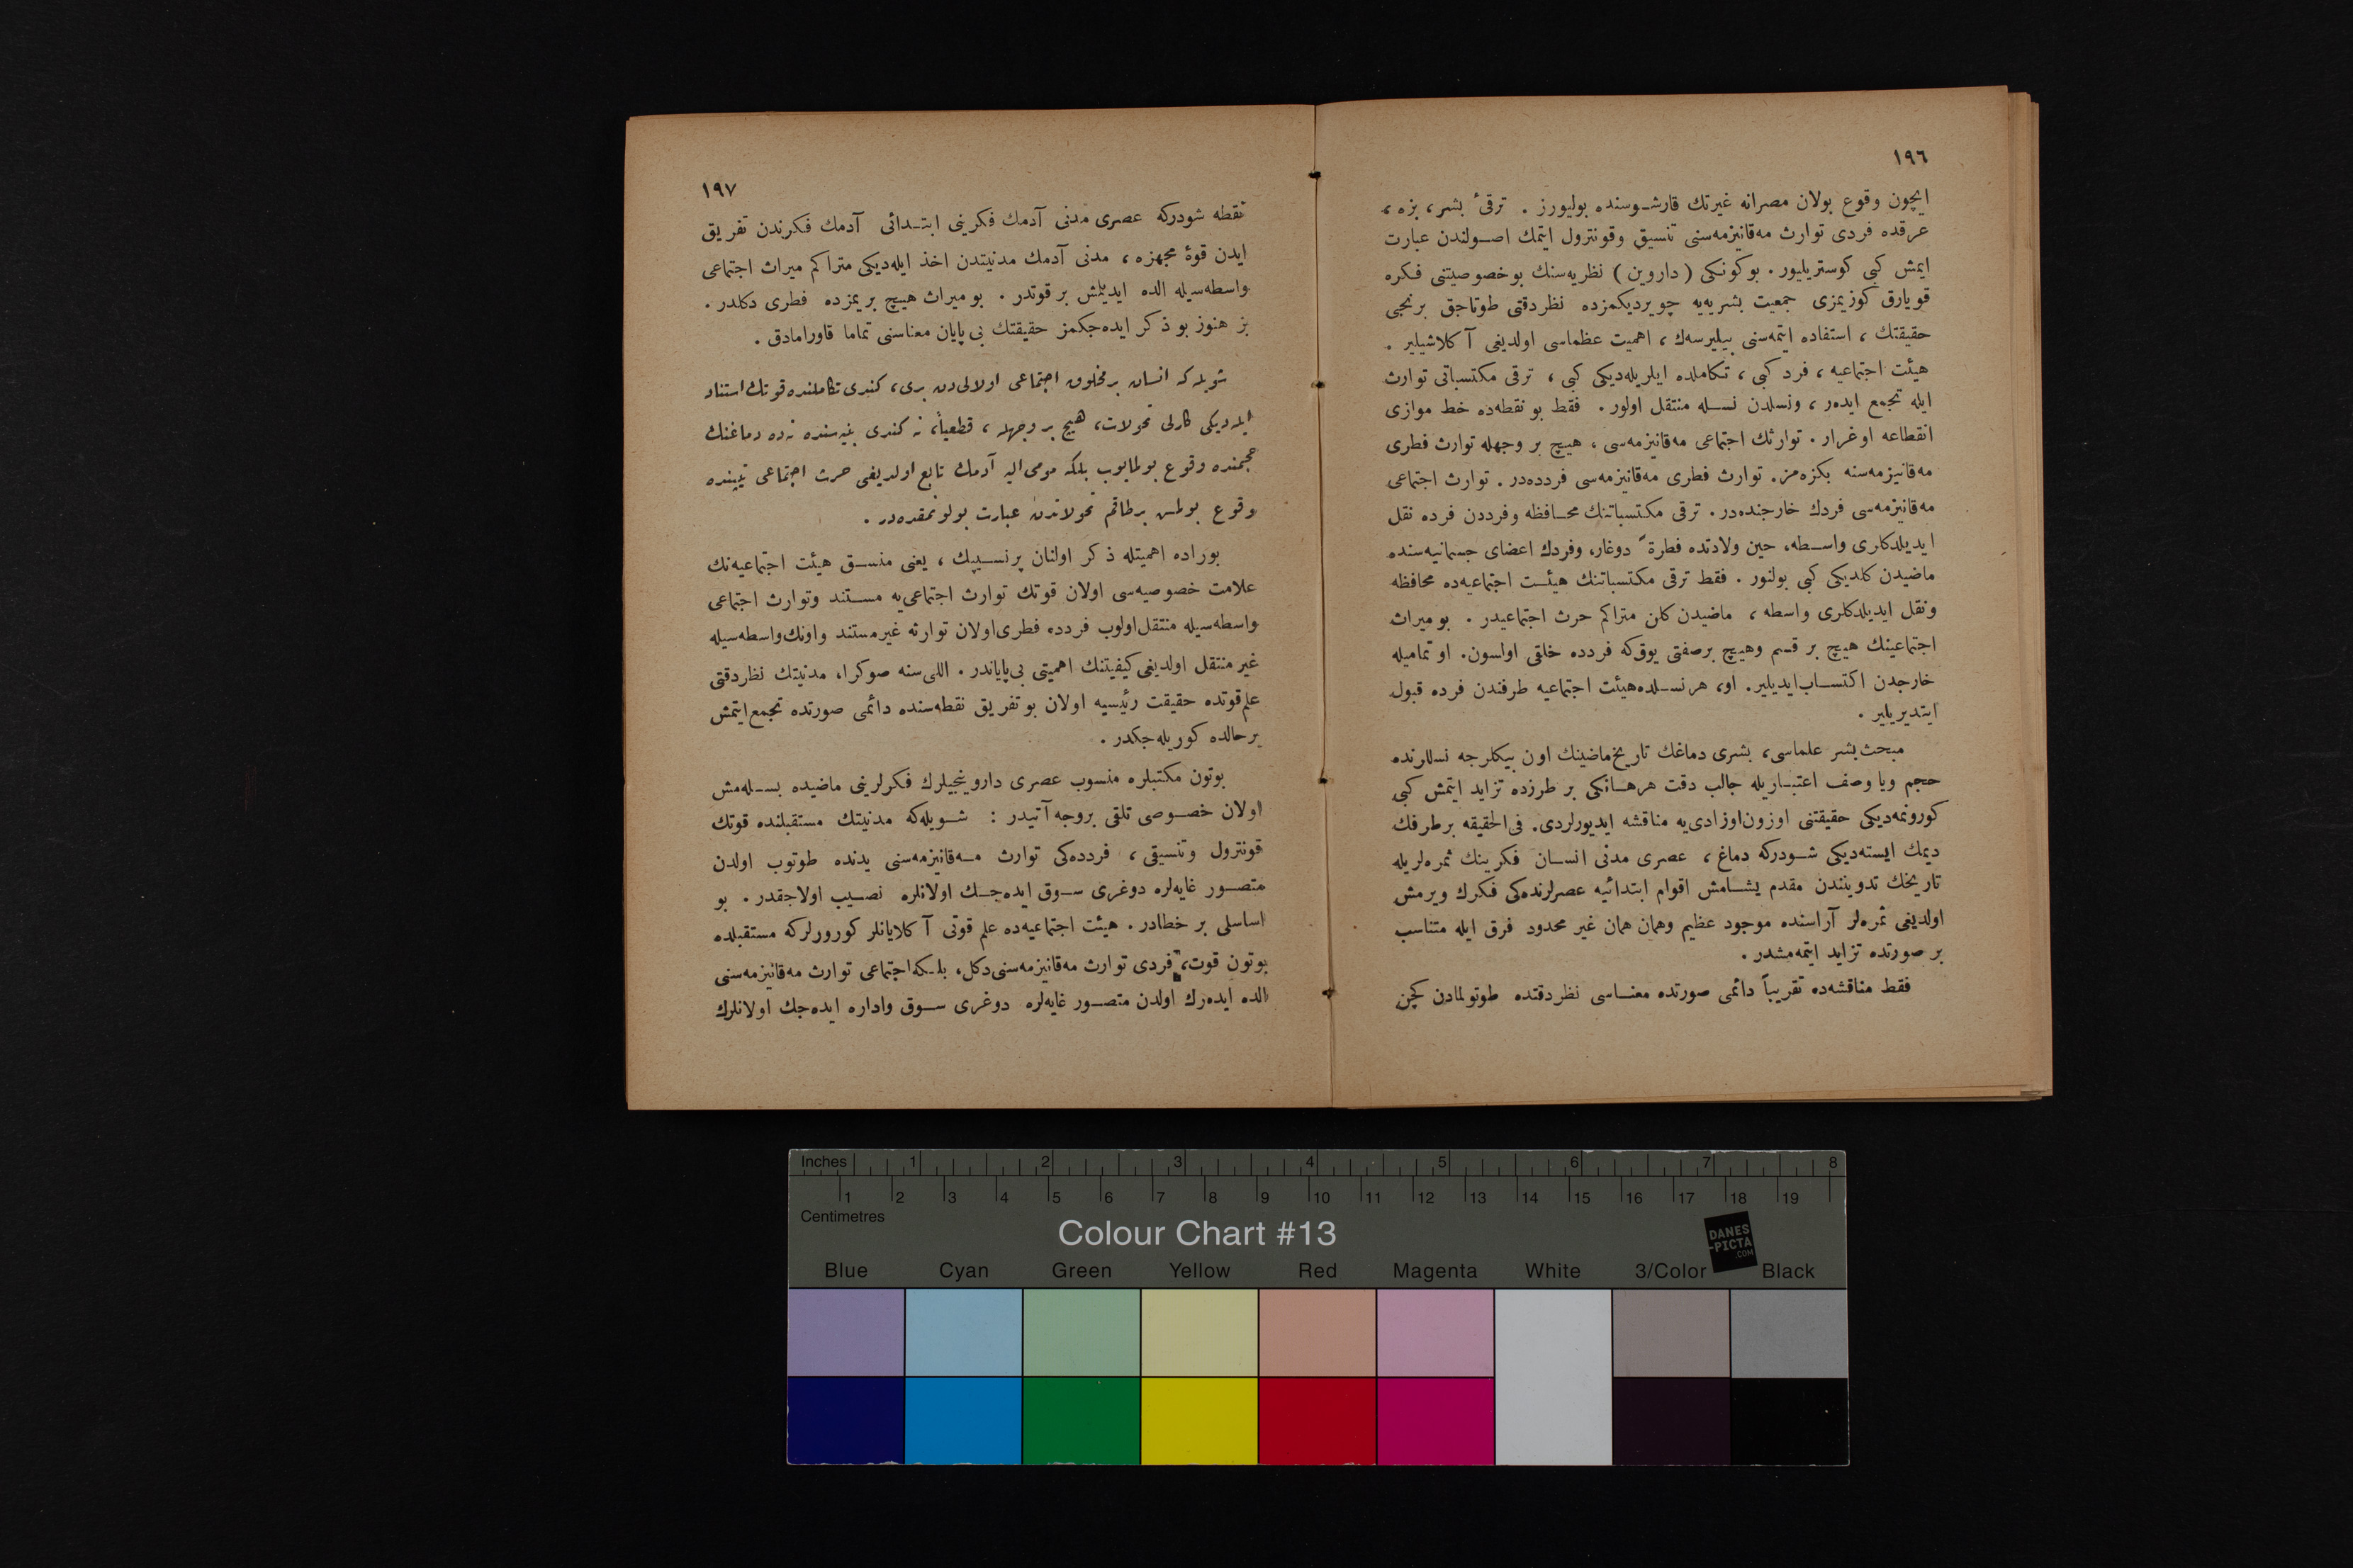 ١٩٦
ایچون وقوع بولان مصرانه غیرتك قارشوسنده بولیورز . ترقیٔ بشر، بزه ،
عرقده فردی توارث مه‌قانیزمه‌سنی تنسیق وقونترول ایتمك اصولندن عبارت
ایمش کبی کوستریلیور . بوکونکی ( داروین ) نظریه‌سنك بوخصوصیتنی فکره
قویارق کوزیمزی جمعیت بشریه‌یه چویردیکمزده نظردقتی طوتاجق برنجی
حقیقتك ، استفاده ایتمه‌سنی بیلیرسه‌ك ، اهمیت عظماسی اولدیغی آکلاشیلیر .
هیئت اجتماعیه ، فرد کبی ، تکاملده ایلریله‌دیکی کبی ، ترقی مکتسباتی توارث
ایله تجمع ایده‌ر ، ونسلدن نسله منتقل اولور . فقط بو نقطه‌ده خط موازی
انقطاعه اوغرار . توارثك اجتماعی مه‌قانیزمه‌سی ، هیچ بر وجهله توارث فطری
مه‌قانیزمه‌سنه بکزه‌مز . توارث فطری مه‌قانیزمه‌سی فردده‌در . توارث اجتماعی
مه‌قانیزمه‌سی فردك خارجنده‌در . ترقی مکتسباتنك محافظه وفرددن فرده نقل
ایدیلدکلری واسطه، حین ولادتده فطرةً دوغار، وفردك اعضای جسمانیه‌سنده
ماضیدن کلدیکی کبی بولنور . فقط ترقی مکتسباتنك هیئت اجتماعیه‌ده محافظه
ونقل ایدیلدکلری واسطه ، ماضیدن کلن متراکم حرث اجتماعیدر . بومیراث
اجتماعینك هیچ بر قسم وهیچ برصفتی یوق‌که فردده خلقی اولسون. او تمامیله
خارجدن اکتساب‌ایدیلیر. او، هرنسلده‌هیئت اجتماعیه طرفندن فرده قبول
ایتدیریلیر .
مبحث‌بشر علماسی، بشری دماغك تاریخ‌ماضینك اون بیکلرجه نسللرنده
حجم ویا وصف اعتباریله جالب دقت هرهانکی بر طرزده تزاید ایتمش کبی
کورونمه‌دیکی حقیقتنی اوزون‌اوزادی‌یه مناقشه ایدیورلردی. فی‌الحقیقه برطرفك
دیمك ایسته‌دیکی شودرکه دماغ ، عصری مدنی انسان فکرینك ثمره‌لریله
تاریخك تدویندن مقدم یشامش اقوام ابتدائیه عصرلرنده‌کی فکرك ویرمش
اولدیغی ثمره‌لر آراسنده موجود عظیم وهمان همان غیر محدود فرق ایله متناسب
بر صورتده تزاید ایتمه‌مشدر .
فقط مناقشه‌ده تقریباً دائمی صورتده معناسی نظردقتده طوتولمادن کچن
١٩٧
نقطه شودرکه عصری مدنی آدمك فکرینی ابتدائی آدمك فکرندن تفریق
ایدن قوهٔ مجهزه ، مدنی آدمك مدنیتدن اخذ ایله‌دیکی متراکم میراث اجتماعی
واسطه‌سیله الده ایدیلمش بر قوتدر . بو میراث هیچ بریمزده فطری دکلدر .
بز هنوز بو ذکر ایده‌جکمز حقیقتك بی‌پایان معناسنی تماما قاورامادق .
شویله که انسان بر مخلوق اجتماعی اولالی‌دن بری، کندی تکاملنده قوتك استناد
ایله‌دیکی کارلی تحولات، هیچ بر وجهله ، قطعیاً، نه کندی بنیه‌سنده نه‌ده دماغنك
حجمنده وقوع بولمایوب بلکه مومی‌الیه آدمك تابع اولدیغی حرث اجتماعی تیپنده
وقوع بولمش برطاقم تحولاتدن عبارت بولونمقده‌در .
بوراده اهمیتله ذکر اولنان پرنسیپك ، یعنی منسق هیئت اجتماعیه‌نك
علامت خصوصیه‌سی اولان قوتك توارث اجتماعی‌یه مستند وتوارث اجتماعی
واسطه‌سیله منتقل‌اولوب فردده فطری‌اولان توارثه غیرمستند واونك‌واسطه‌سیله
غیر منتقل اولدیغی کیفیتنك اهمیتی بی‌پایاندر . اللی سنه صوکرا، مدنیتك نظردقتی
علم‌قوتده حقیقت رئیسیه اولان بو تفریق نقطه‌سنده دائمی صورتده تجمع‌ایتمش
برحالده کوریله‌جکدر .
بوتون مکتبلره منسوب عصری داروینجیلرك فکرلرینی ماضیده بسله‌مش
اولان خصوصی تلقی بروجه آتیدر : شویله‌که مدنیتك مستقبلنده قوتك
قونترول وتنسیقی ، فردده‌کی توارث مه‌قانیزمه‌سنی یدنده طوتوب اولدن
متصور غایه‌لره دوغری سوق ایده‌جك اولانلره نصیب اولاجقدر . بو
اساسلی بر خطادر . هیئت اجتماعیه‌ده علم قوتی آکلایانلر کورورلرکه مستقبلده
بوتون قوت، فردی توارث مه‌قانیزمه‌سنی‌دکل، بلکه‌اجتماعی توارث مه‌قانیزمه‌سنی
الده ایده‌رك اولدن متصور غایه‌لره دوغری سوق واداره ایده‌جك اولانلرك
Inches 1 2 3 4 5 6 7 8
1 2 3 4 5 6 7 8 9 10 11 12 13 14 15 16 17 18 19
Centimetres
Colour Chart #13
DANES
-PICTA
.COM
Blue Cyan Green Yellow Red Magenta White 3/Color Black